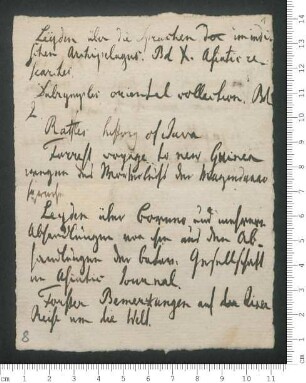 Leyden über die Sprachen des im indi-
schen Archipelagus. Bd X. Asiatic re-
searches
Dalrymples oriental collection. Bd
2
Raffles history of Java
Forrest voyage to new Guinea
wegen des der Magendanao
Sprach
Leyden über Borneo und mehrere
Abhandlungen von ihm aus den Ab-
handlungen der batav. Gesellschaft
im Asiatic Journal.
Forster Bemerkungen auf der Reise
Reise um die Welt.
8